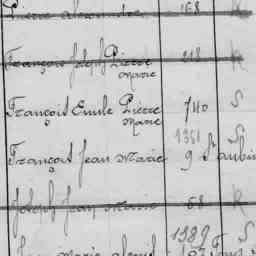 Pierre Alexandre 168
François Joseph Pierre 218 R
Marie
François Emile Pierre 740 S
Marie
1351 S
François Jean Marie 9 St aubin
Joseph Jean Marie 68 R
1389 S
Jean Marie